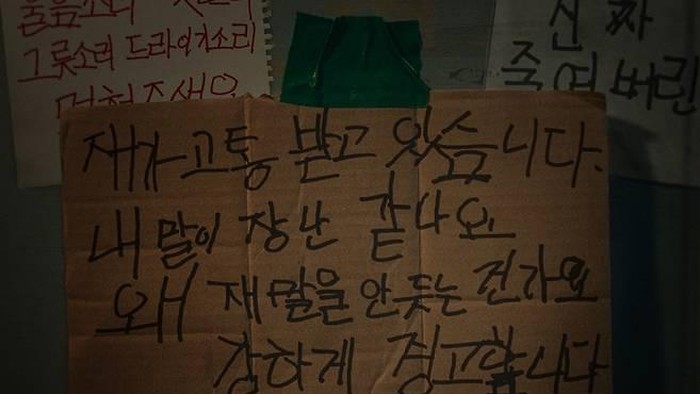 울음소리
그릇소리 드라이기소리
멈춰주세요
진짜
죽여버린
재가 고통 받고 있습니다.
내 말이 장난 같나요
왜 재 말을 안 듣는 건가요
강하게 경고합니다